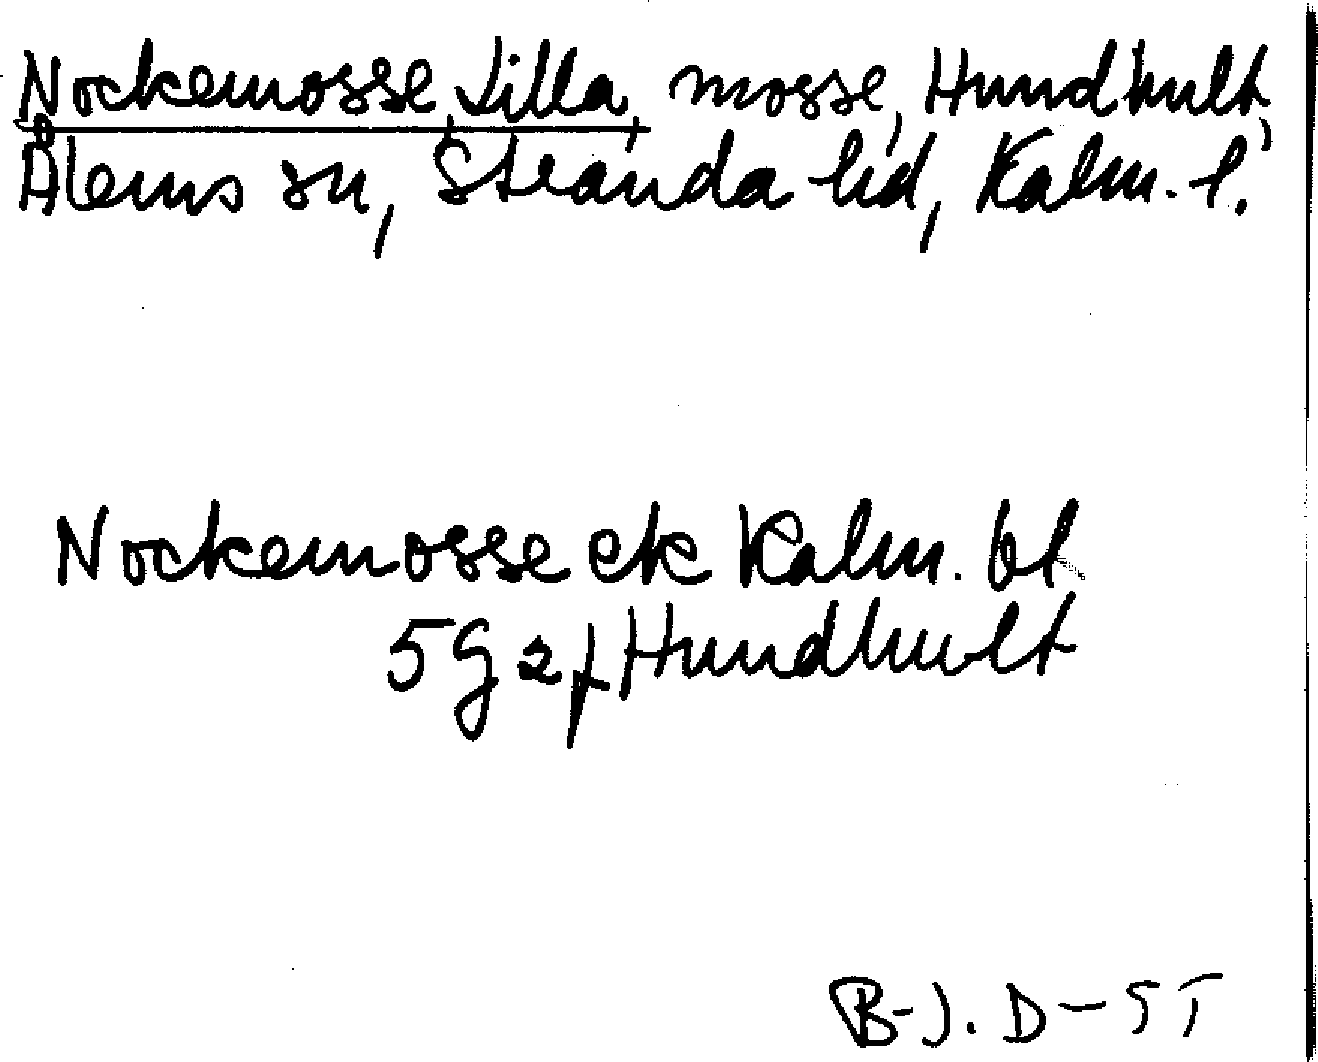 Nockemosse, Lilla, mosse, Hundhult,
Ålems sn, Stranda hd, Kalm. l.
Nockemosse ek Kalm. bl
5 g 2 f Hundhult
B-J. D-57